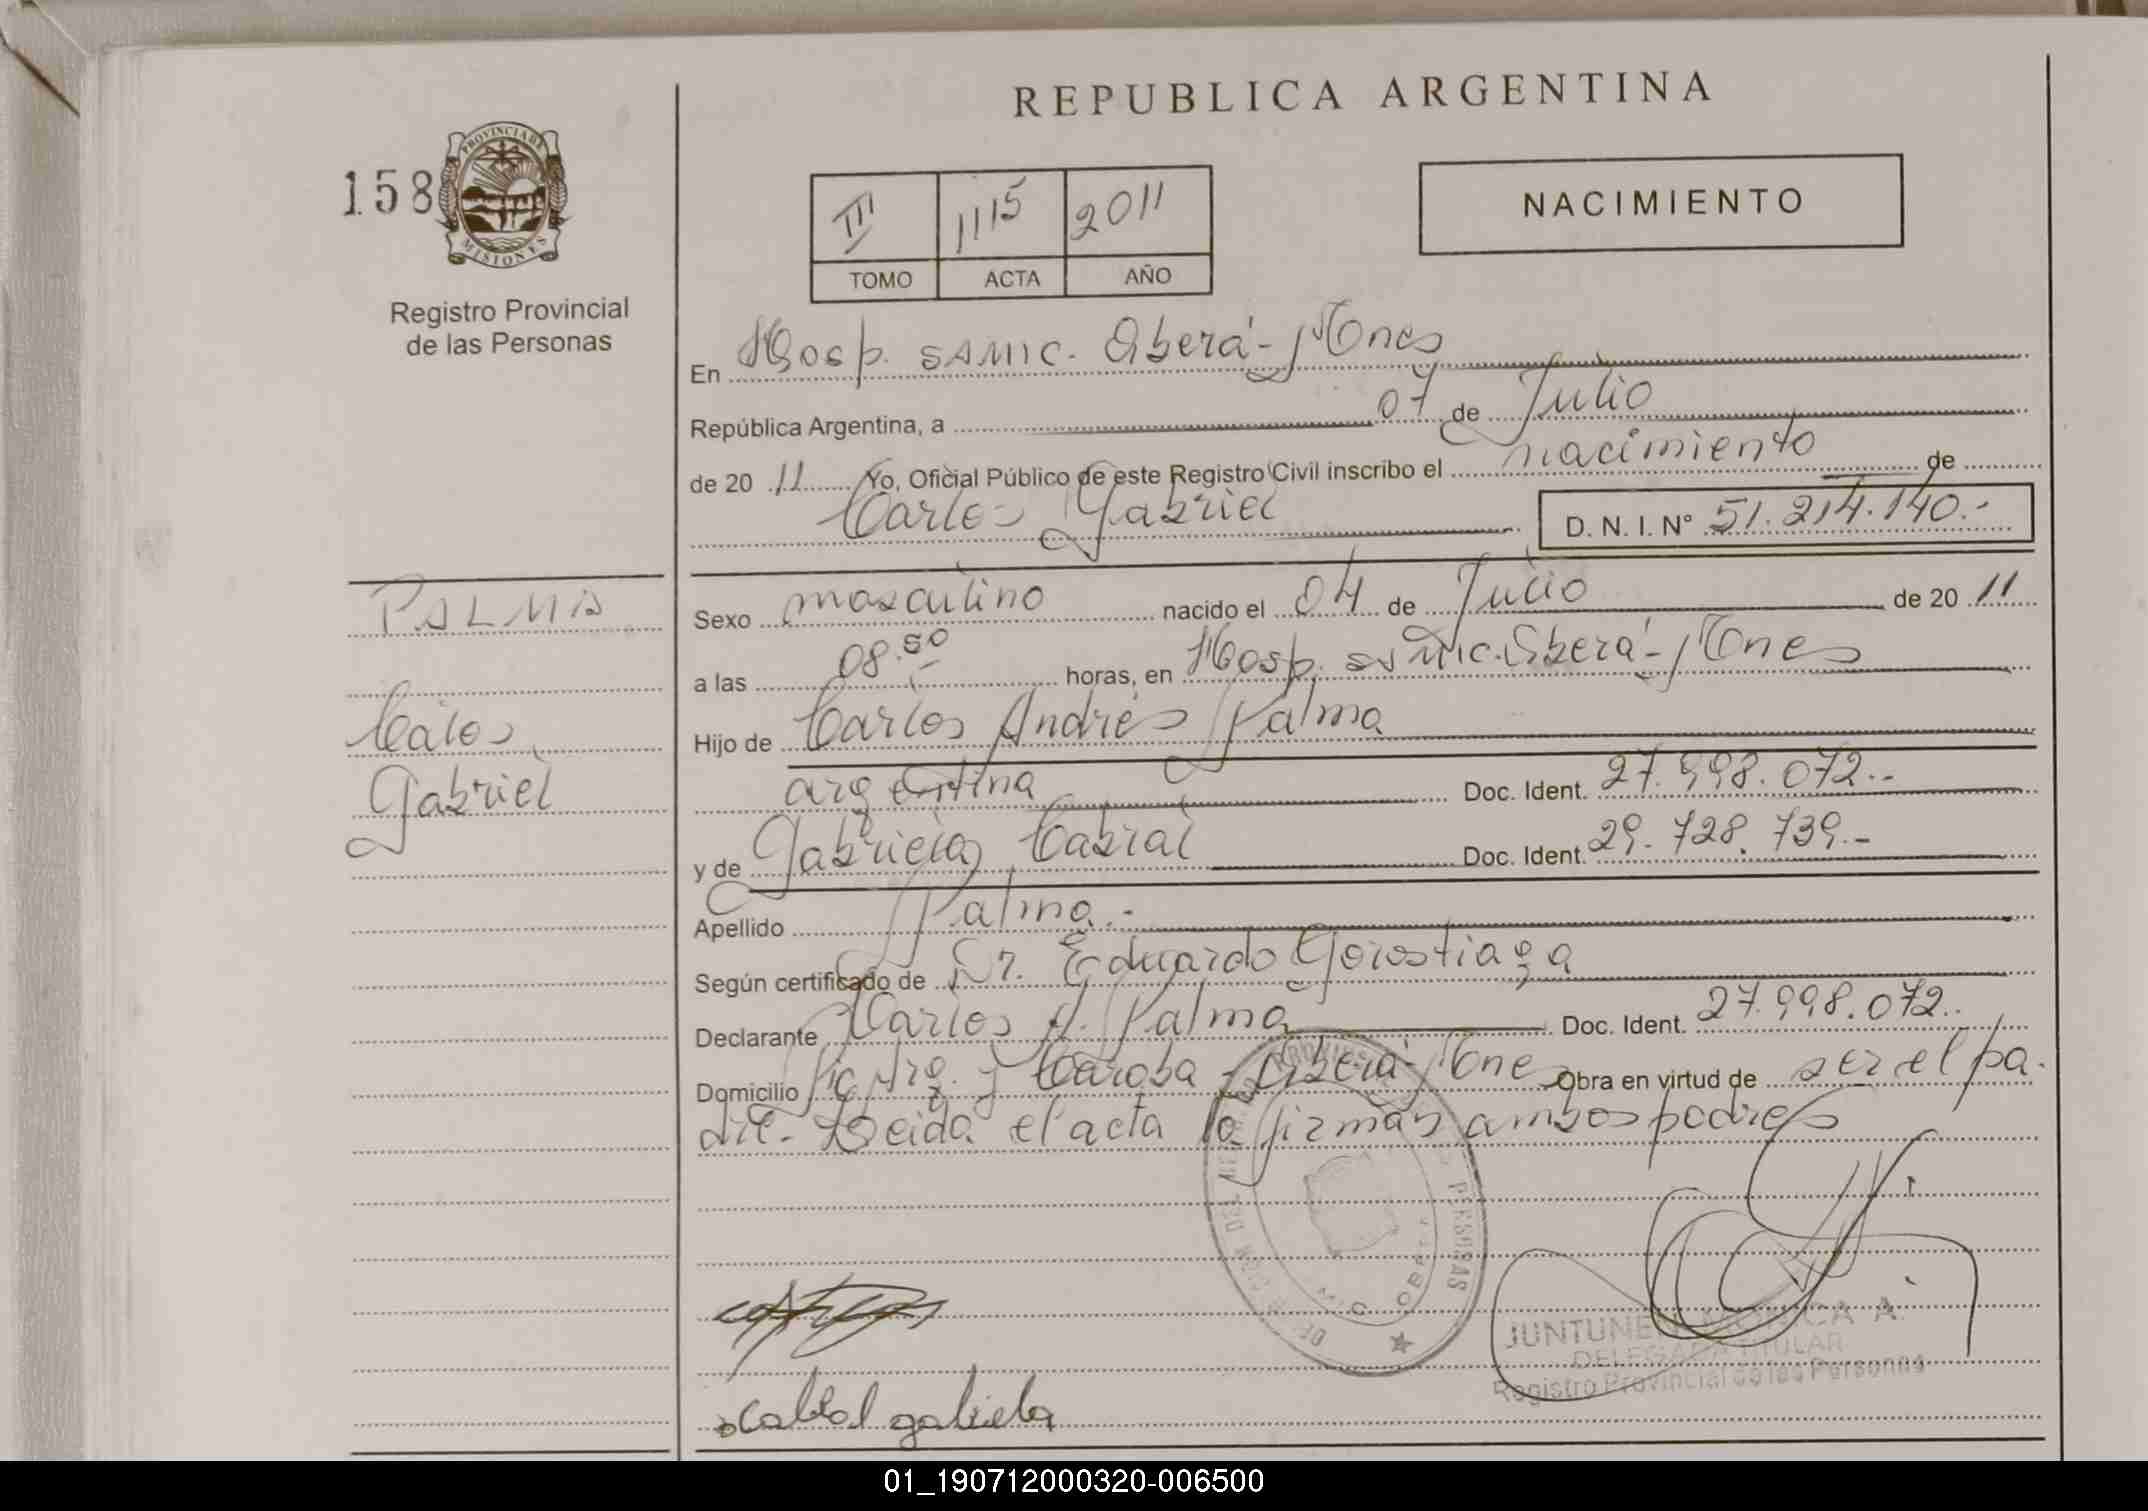 REPUBLICA ARGENTINA
158
PROVINCIA DE
MISIONES
Registro Provincial
de las Personas
III 1115 2011
TOMO ACTA AÑO
NACIMIENTO
En Hosp. SAMIC. Oberá - Mnes
República Argentina, a 07 de Julio
de 20 11 Yo, Oficial Público de este Registro Civil inscribo el nacimiento de
Carlos Gabriel D. N. I. N° 51.214.140.-
PALMA
Carlos
Gabriel
Sexo masculino nacido el 04 de Julio de 20 11
a las 08.50 horas, en Hosp. SAMIC. Oberá - Mnes
Hijo de Carlos Andrés Palma
argentina Doc. Ident. 27.998.072.-
y de Gabriela Cabral Doc. Ident. 29.728.739.-
Apellido Palma.-
Según certificado de Dr. Eduardo Gorostiaga
Declarante Carlos A. Palma Doc. Ident. 27.998.072.
Domicilio Arg. y Caroba - Oberá - Mnes Obra en virtud de ser el pa-
dre. Leída el acta la firman ambos padres
PERSONAS
JUNTUNEN MONICA A.
DELEGADA TITULAR
Registro Provincial de las Personas
Cabral gabriela
01_190712000320-006500